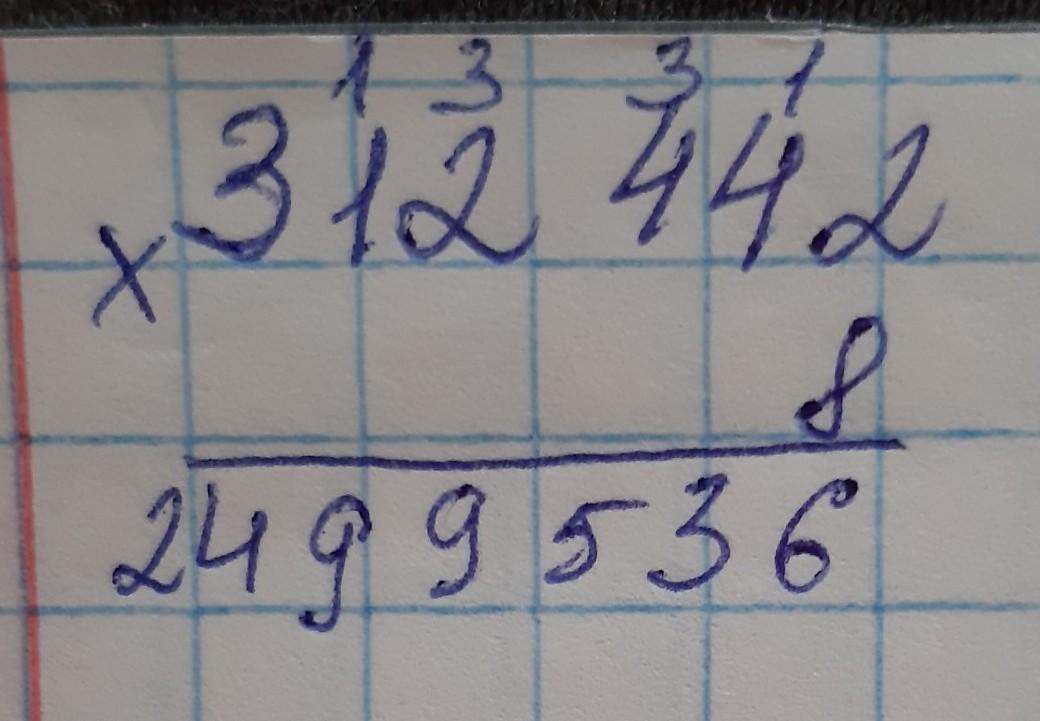 1 3 3 1
312 442
x
8
2499536